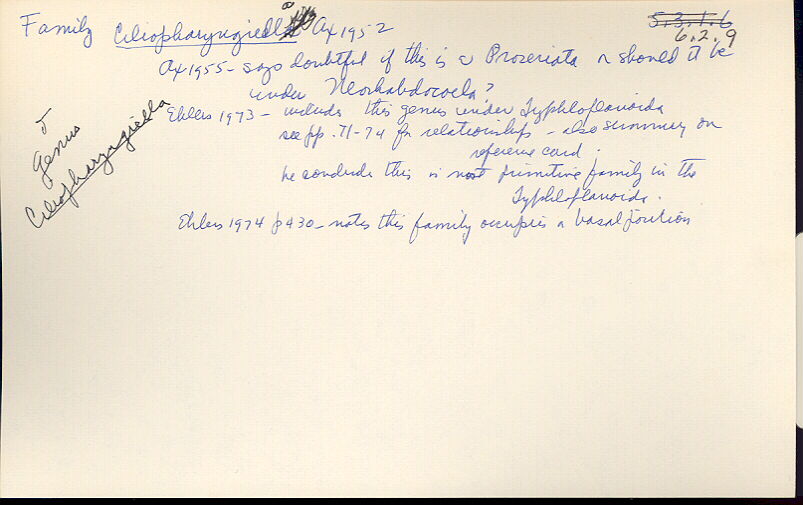 Family Ciliopharyngiella Ax 1952
5.3.1.6
6.2.9
Ax 1955 - says doubtful if this is a Proseriata or should it be
under Neorhabdocoela?
& Genus
Ciliopharyngiella
Ehlers 1973 - includes this genus under Typhloplanoida
see pp. 71-74 for relationships - also summary on
reference card.
he concludes this is most primitive family in the
Typhloplanoida.
Ehlers 1974 p 430 - notes this family occupies a basal position